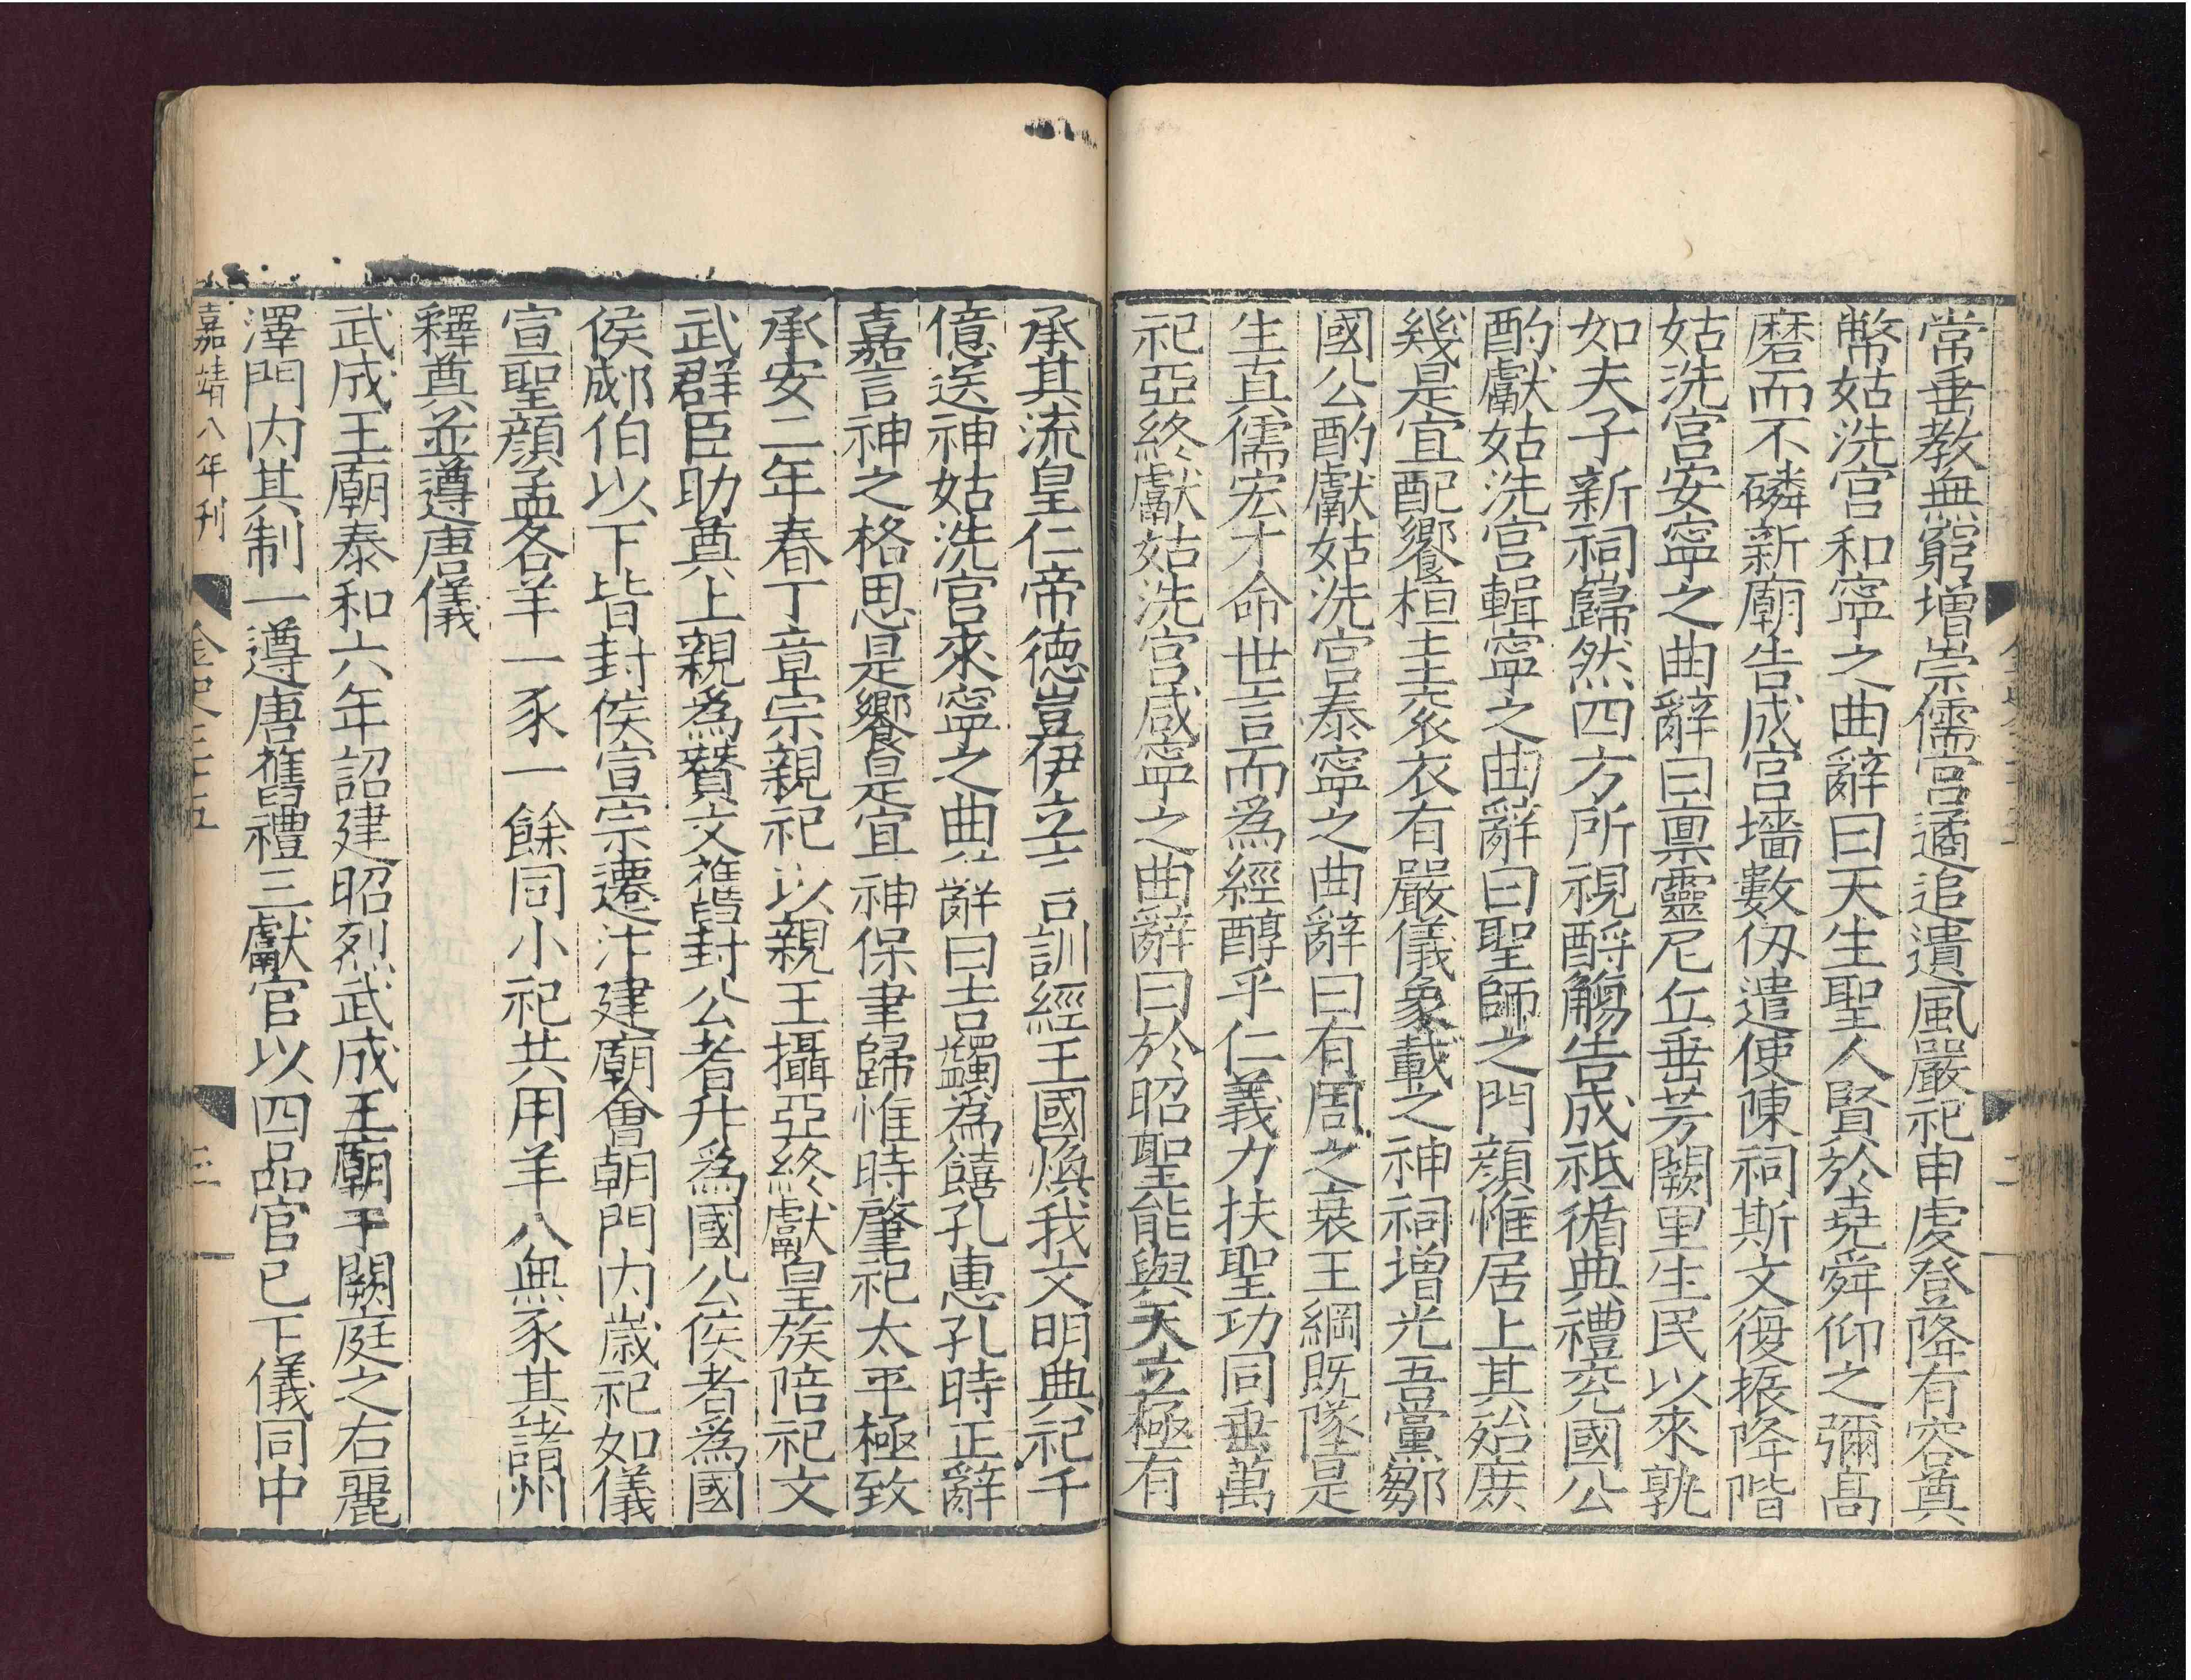 常垂教無窮增崇儒宮遹追遺風嚴祀申虔登降有容奠
幣姑洗宮和寧之曲辭曰天生聖人賢於堯舜仰之彌高
磨而不磷新廟告成宮墻數仞遣使陳祠斯文復振降階
姑洗宮安寧之曲辭曰禀靈尼丘垂芳闕里生民以來孰
如夫子新祠歸然四方所視酹觴告成祗循典禮兖國公
酌獻姑洗宮輯寧之曲辭曰聖師之門顔惟居上其殆庶
幾是宜配饗桓圭衮衣有嚴儀象載之神祠增光吾黨鄒
國公酌獻姑洗宮泰寧之曲辭曰有周之衰王綱既墜是
生真儒宏才命世言而為經醇乎仁義力扶聖功同垂萬
祀亞終獻姑洗宮咸寧之曲辭曰於昭聖能與天立極有
二
承其流皇仁帝德豈伊立言訓經王國煥我文明典祀千
億送神姑洗宮來寧之曲辭曰吉蠲為饎孔惠孔時正辭
嘉言神之格思是饗是宜神保聿歸惟時肇祀太平極致
承安二年春丁章宗親祀以親王攝亞終獻皇族陪祀文
武群臣助奠上親為贊文舊封公者升為國公侯者為國
侯郕伯以下皆封侯宣宗遷汴建廟會朝門内歲祀如儀
宣聖顔孟各羊一豕一餘同小祀共用羊八無豕其諸州
釋奠並遵唐儀
武成王廟泰和六年詔建昭烈武成王廟于闕庭之右麗
澤門内其制一遵唐舊禮三獻官以四品官已下儀同中
嘉靖八年刊
金史三十五
三